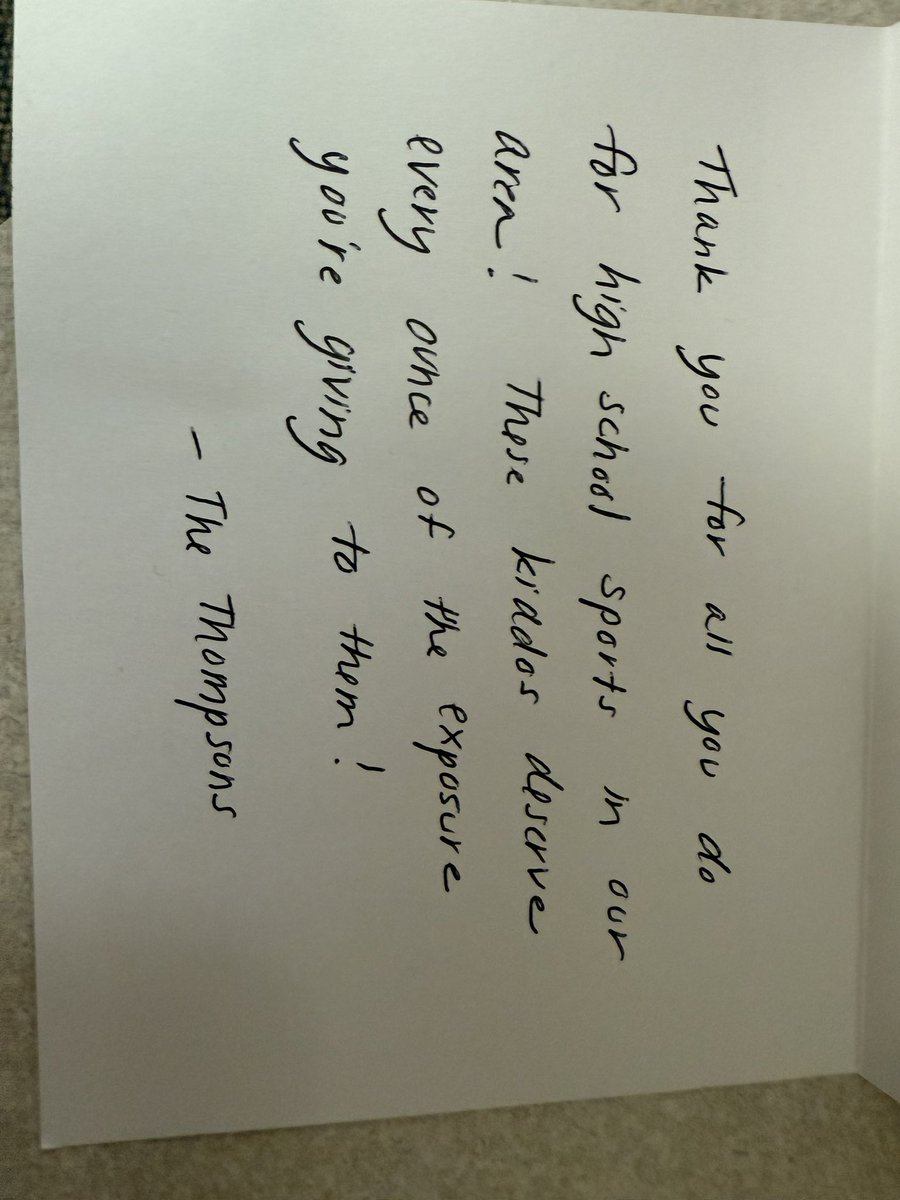 Thank you for all you do
for high school sports in our
area! These kiddos deserve
every ounce of the exposure
you're giving to them!
- The Thompsons